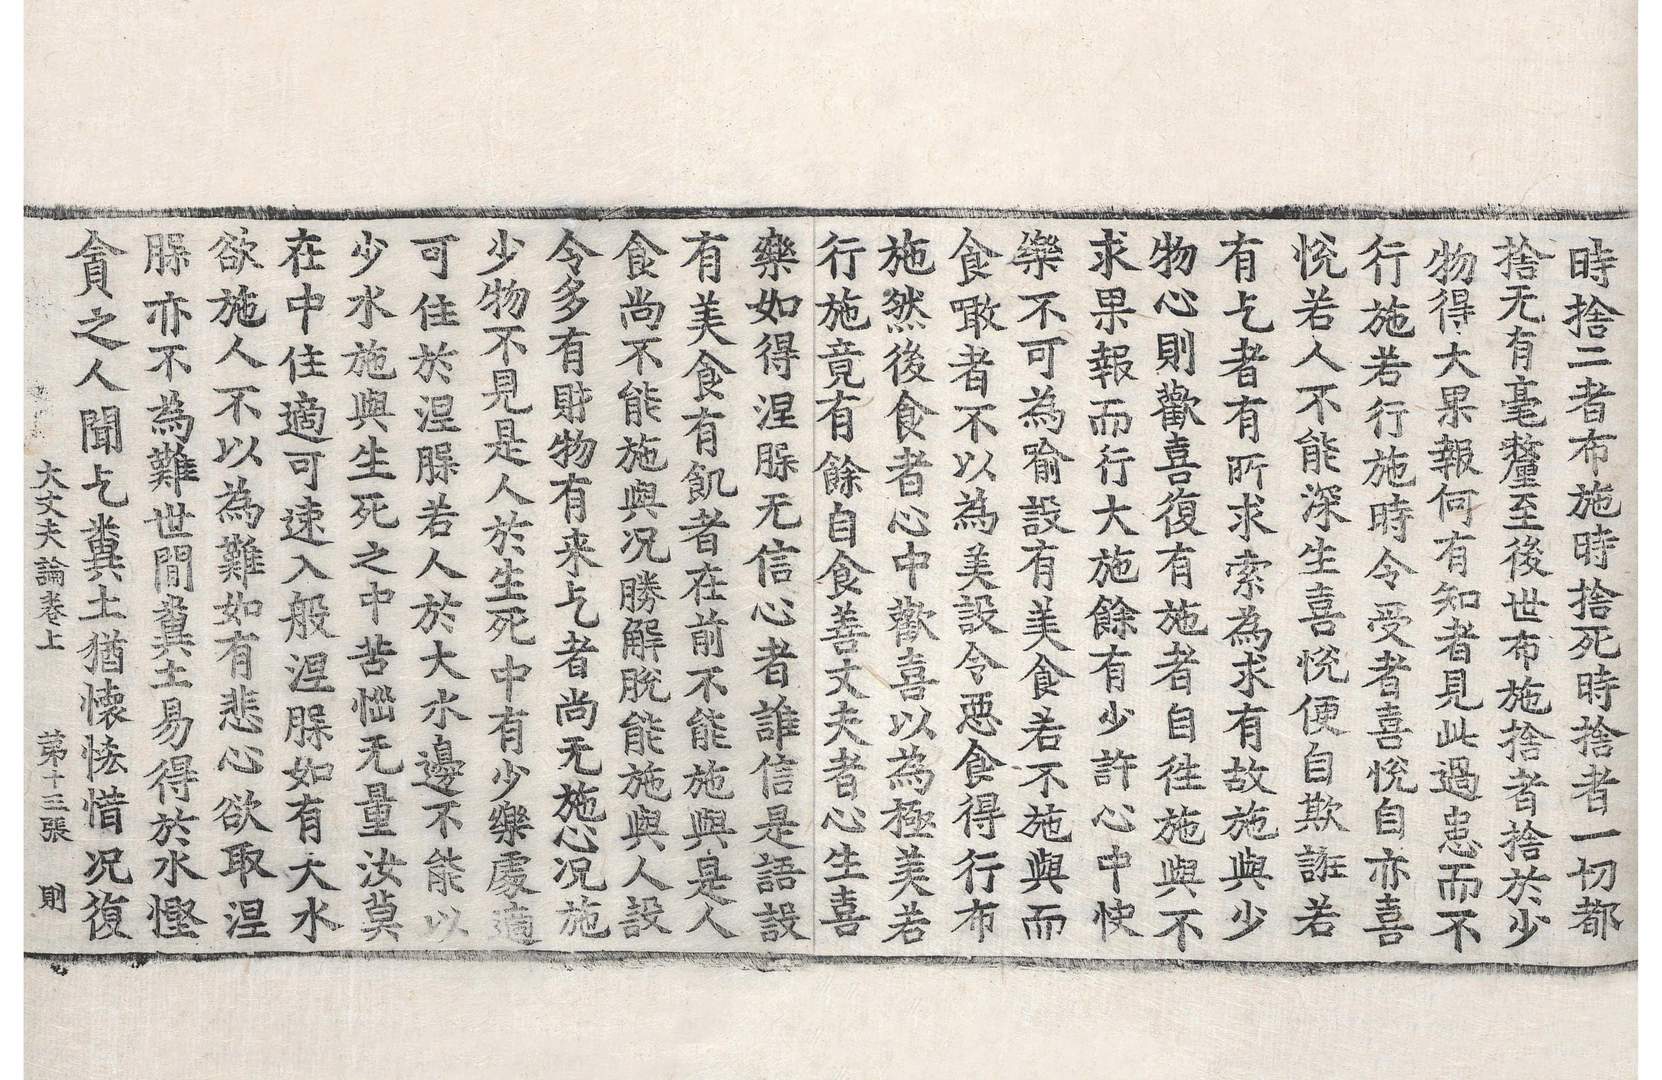 時捨二者布施時捨死時捨者一切都
捨无有毫釐至後世布施捨者捨於少
物得大果報何有知者見此過患而不
行施若行施時令受者喜悅自亦喜
悅若人不能深生喜悅便自欺誑若
有乞者有所求索為求有故施與少
物心則歡喜復有施者自往施與不
求果報而行大施餘有少許心中快
樂不可為喻設有美食若不施與而
食噉者不以為美設令惡食得行布
施然後食者心中歡喜以為極美若
行施竟有餘自食善丈夫者心生喜
樂如得涅脲无信心者誰信是語設
有美食有飢者在前不能施與是人
食尚不能施與况勝解脫能施與人設
令多有財物有来乞者尚无施心况施
少物不見是人於生死中有少樂處適
可住於涅脲若人於大水邊不能以
少水施與生死之中苦惱无量汝莫
在中住適可速入般涅脲如有大水
欲施人不以為難如有悲心欲取涅
脲亦不為難世間糞土易得於水慳
貪之人聞乞糞土猶懷恡惜况復
大丈夫論卷上 第十三張 則